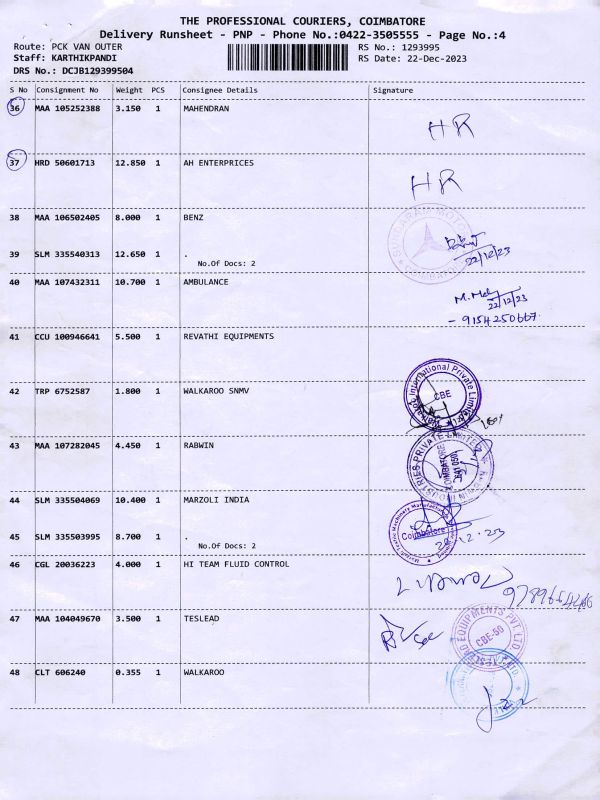 THE PROFESSIONAL COURIERS, COIMBATORE
Delivery Runsheet - PNP - Phone No.:0422-3505555 - Page No.:4
Route: PCK VAN OUTER RS No.: 1293995
Staff: KARTHIKPANDI RS Date: 22-Dec-2023
DRS No.: DCJB129399504
S No Consignment No Weight PCS Consignee Details Signature
36 MAA 105252388 3.150 1 MAHENDRAN
HR
37 HRD 50601713 12.850 1 AH ENTERPRICES
HR
38 MAA 106502405 8.000 1 BENZ
SUNDARAM MOTORS
22/12/23
39 SLM 335540313 12.650 1 .
No.Of Docs: 2
40 MAA 107432311 10.700 1 AMBULANCE
22/12/23
41 CCU 100946641 5.500 1 REVATHI EQUIPMENTS
42 TRP 6752587 1.800 1 WALKAROO SNMV
International Private Limited
CBE
43 MAA 107282045 4.450 1 RABWIN
INDUSTRIES PRIVATE LIMITED
44 SLM 335504069 10.400 1 MARZOLI INDIA
Coimbatore
45 SLM 335503995 8.700 1 .
No.Of Docs: 2
46 CGL 20036223 4.000 1 HI TEAM FLUID CONTROL
47 MAA 104049670 3.500 1 TESLEAD
EQUIPMENTS PVT. LTD
CBE-50
48 CLT 606240 0.355 1 WALKAROO